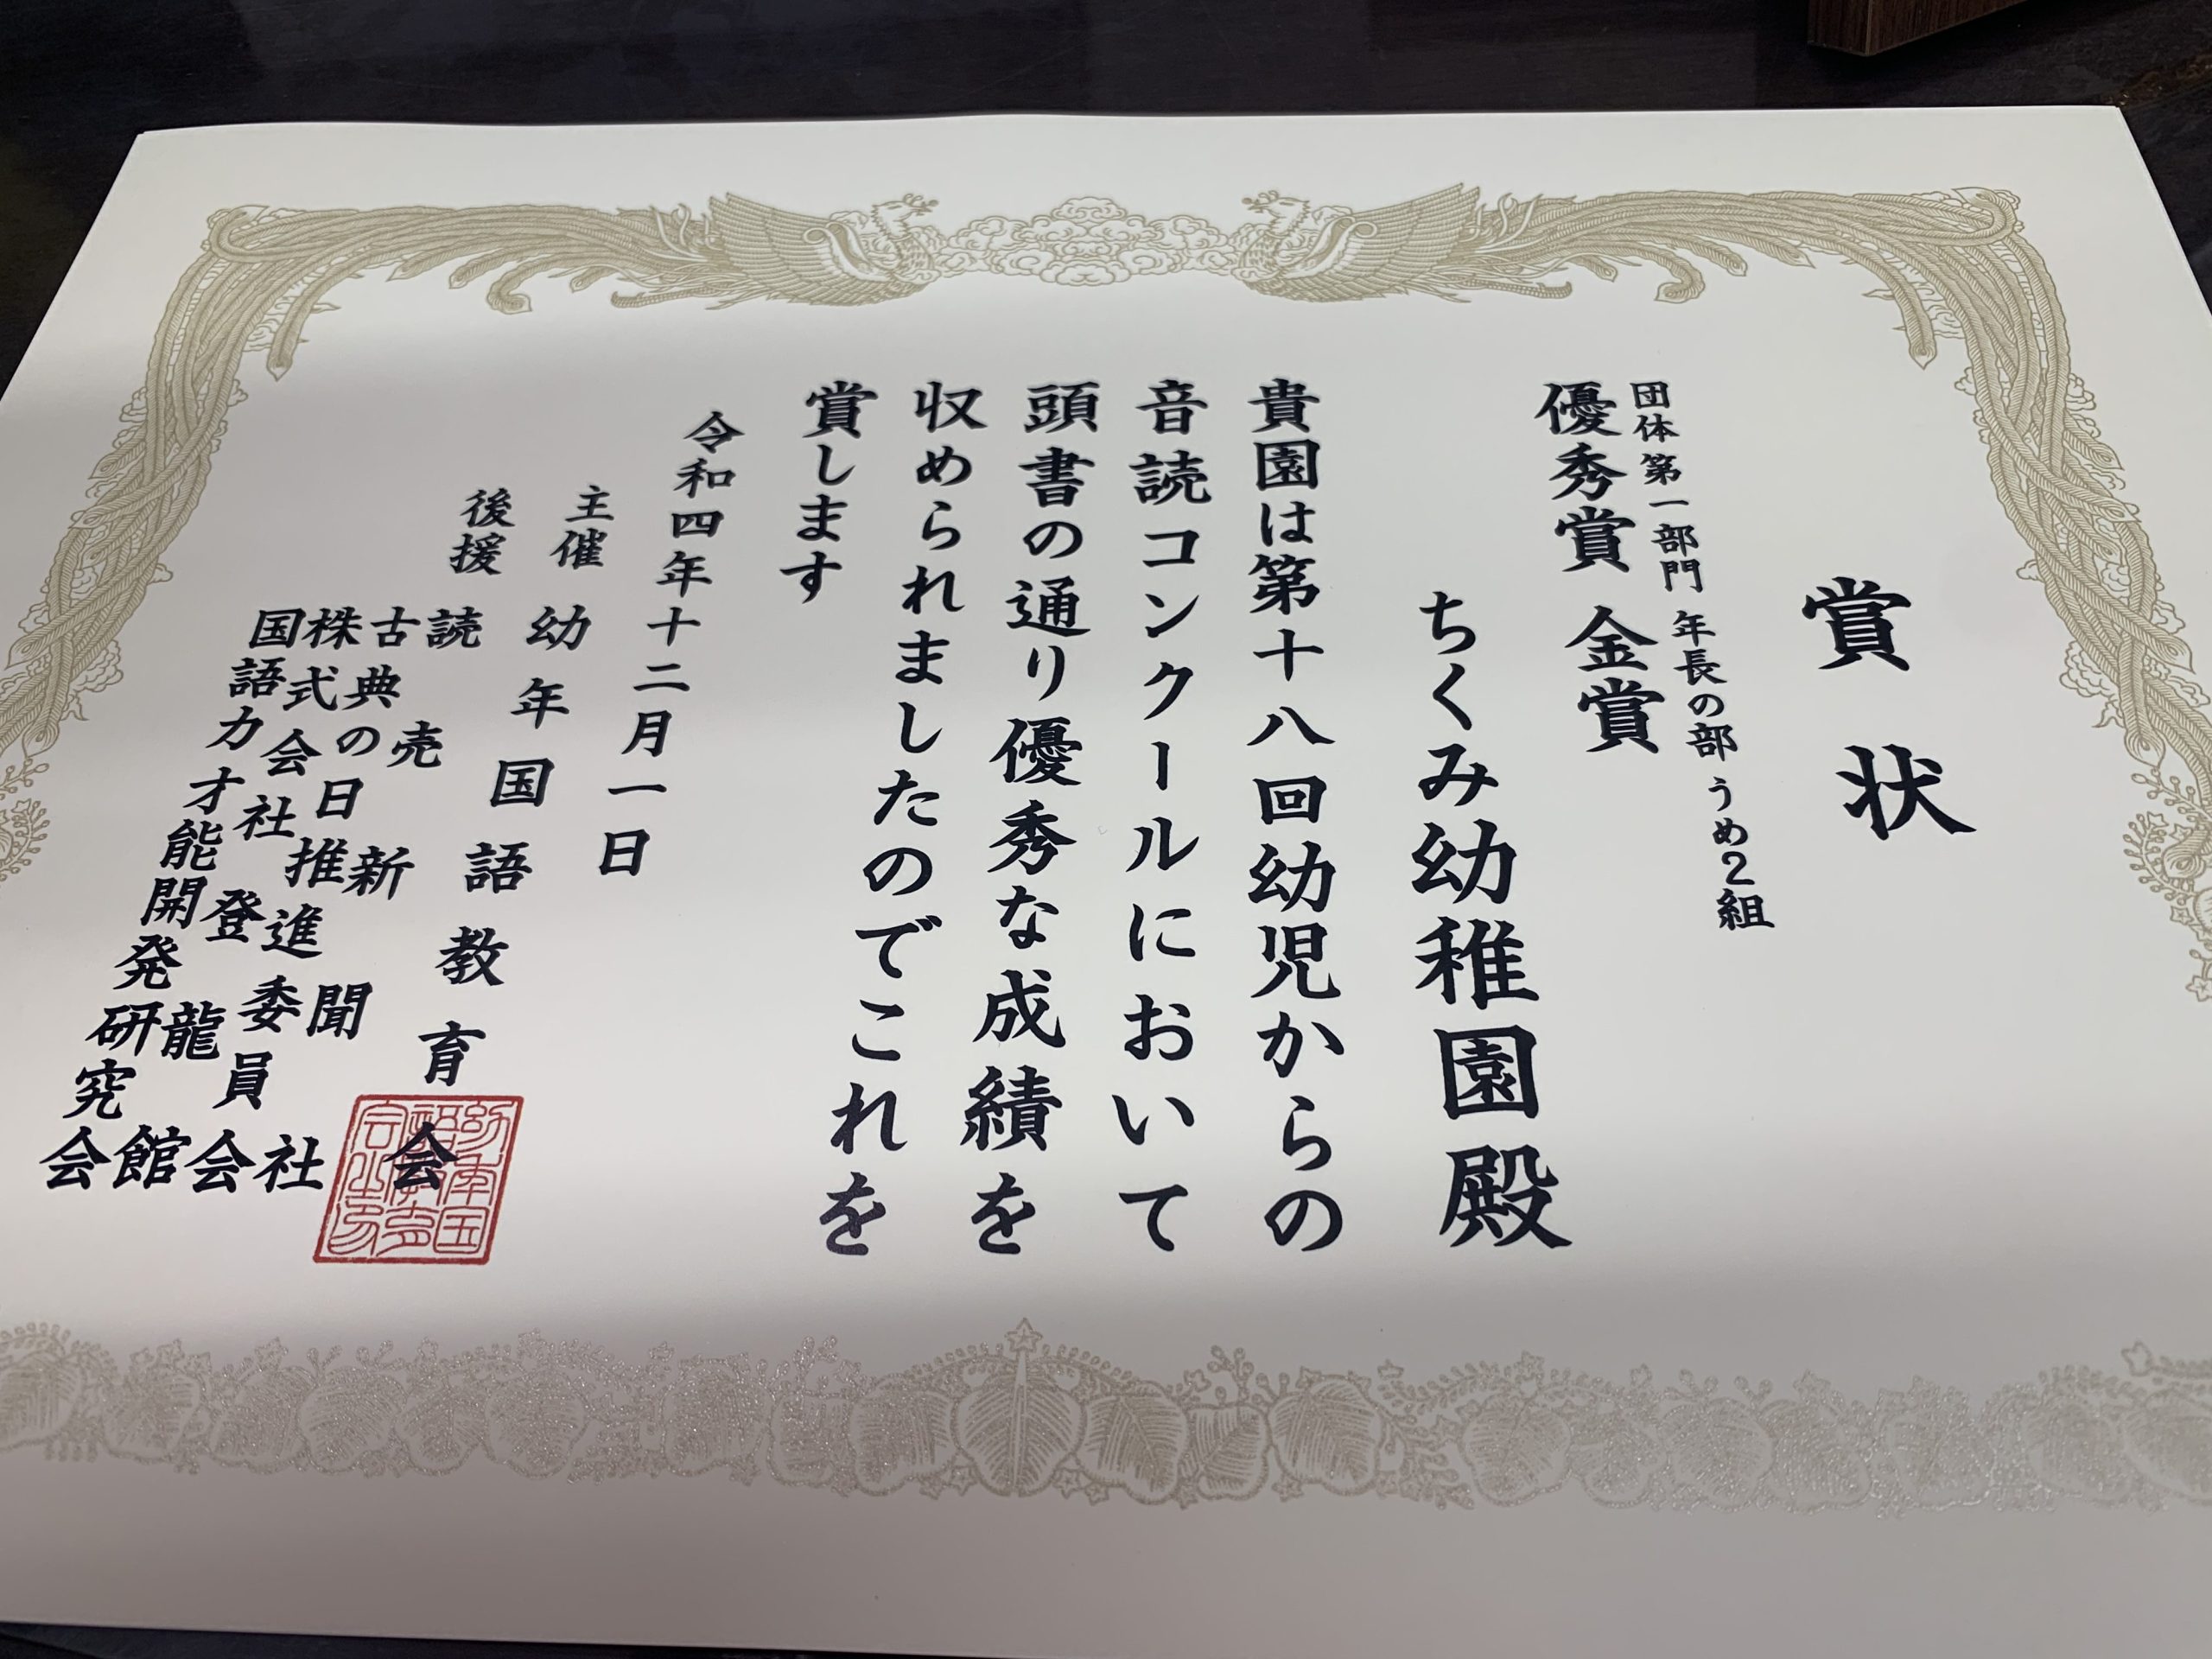 賞状
団体第一部門 年長の部 うめ2組
優秀賞 金賞
ちくみ幼稚園殿
貴園は第十八回幼児からの
音読コンクールにおいて
頭書の通り優秀な成績を
収められましたのでこれを
賞します
令和四年十二月一日
主催 幼年国語教育会
後援 読売新聞社
古典の日推進委員会
株式会社 登龍館
国語力才能開発研究会